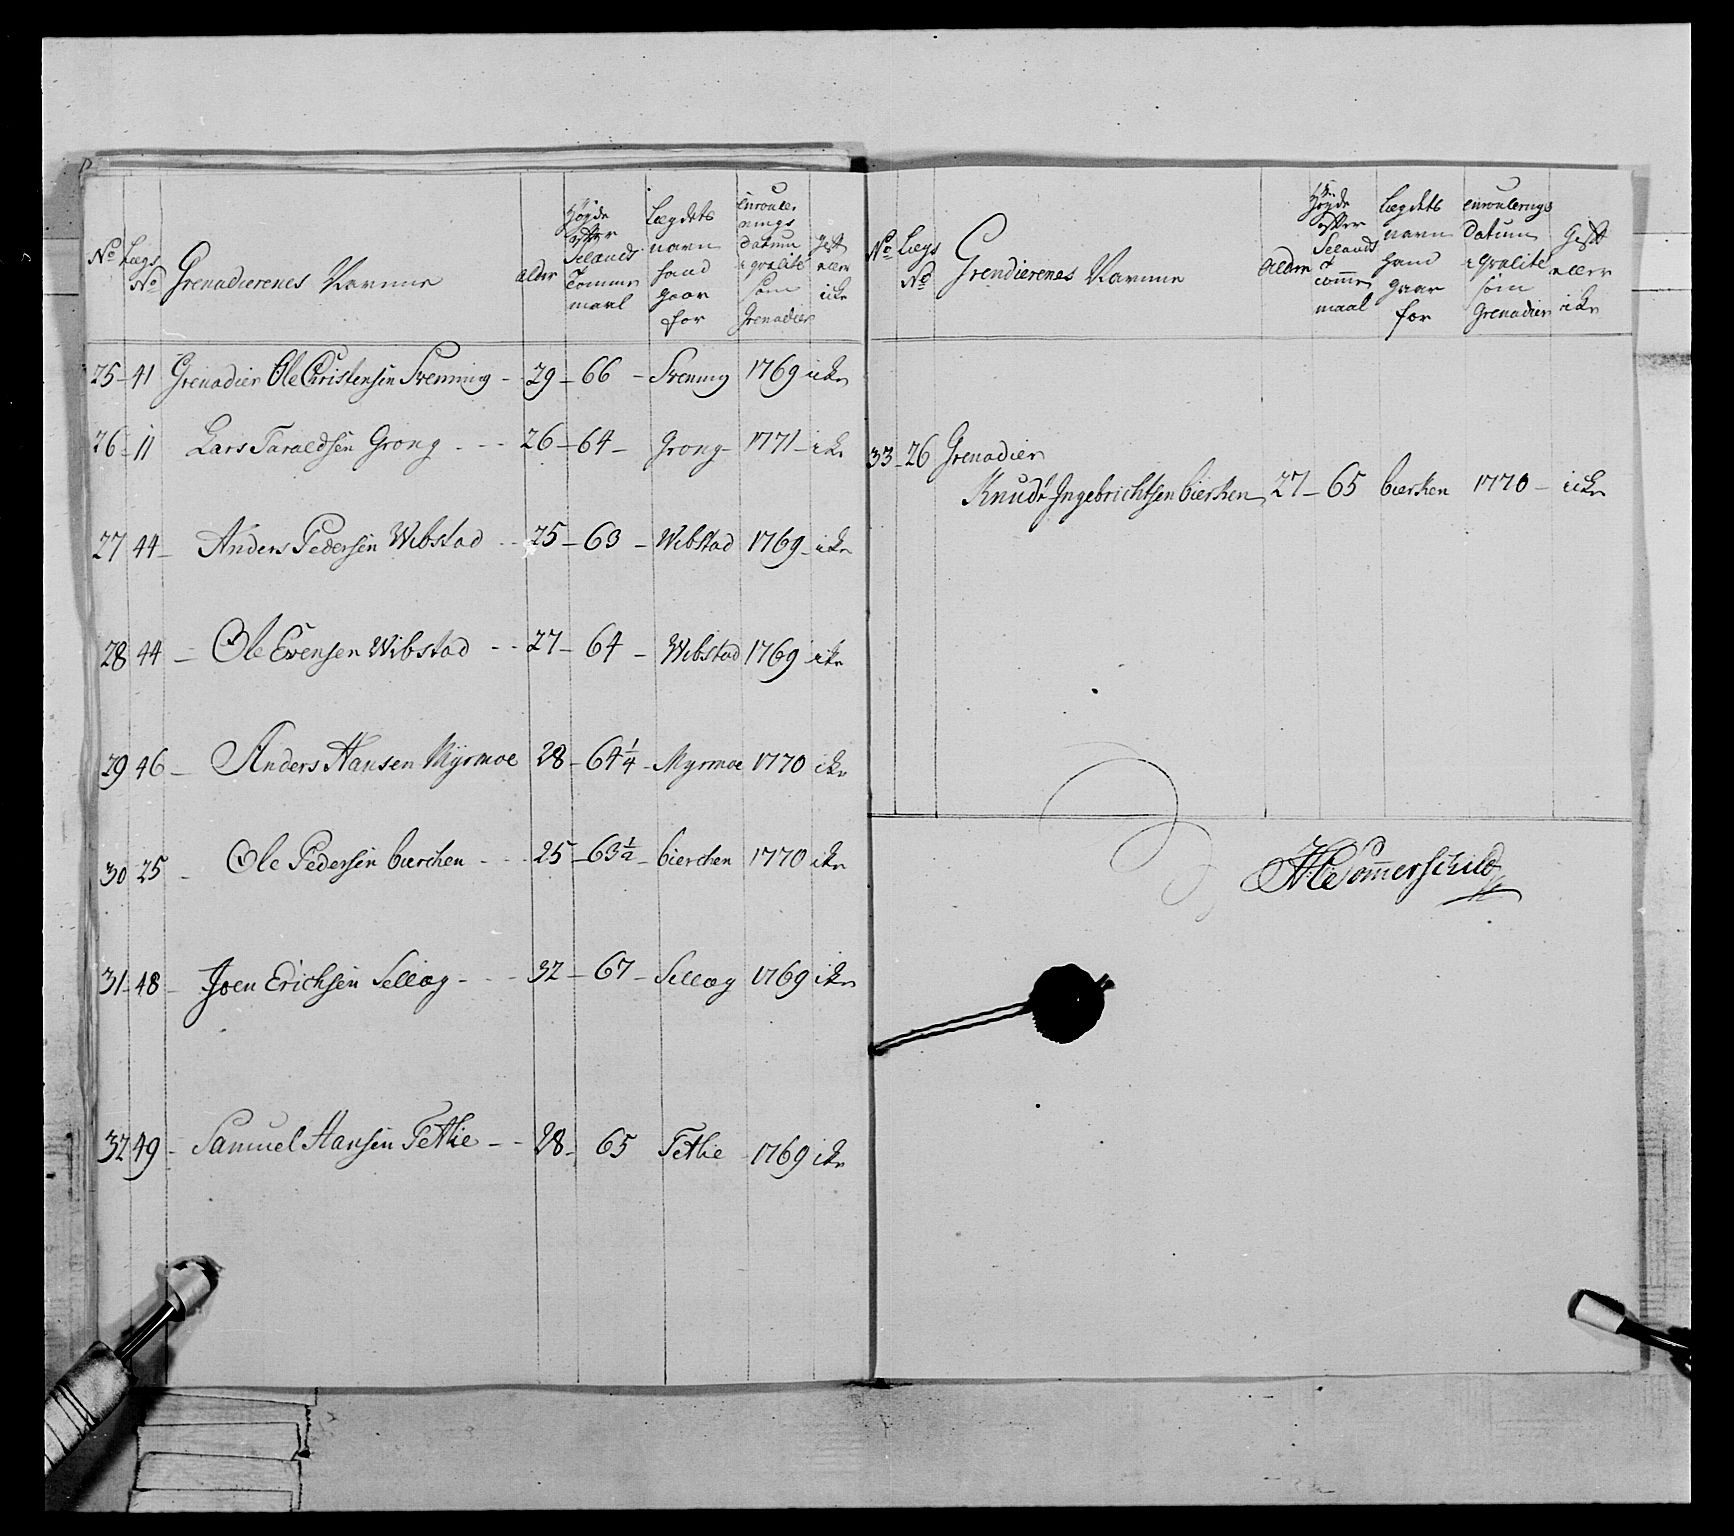 No Lægs No Grenadierenes Navnne alder Høyde efter Selands Tomme maal Lægdets navn hand gaar for enroulerings Datum i qvalité som Grenadier gift eller icke
25 - 41 Grenadier Ole Christensen Svenning - 29 - 66 - Svening 1769 icke
26 - 11 Lars Taraldsen Grong - - - 26 - 64 - Grong - 1771 - icke
27 44 - Anders Pedersen Wibstad - - 25 - 63 - Wibstad 1769 - icke
28 44 - Ole Evensen Wibstad - - 27 - 64 - Wibstad 1769 icke
29 46 - Anders Hansen Myrmoe 28 - 64 1/4 - Myrmoe 1770 icke
30 25 - Ole Pedersen bierchen - - - 25 - 63 1/2 - bierchen 1770 icke
31 - 48 - Joen Erichsen Sellæg - - - 32 - 67 - Sellæg 1769 icke
32 49 - Samuel Hansen Tetlie - - 28 - 65 Tetlie 1769 icke
No Lægs No Grendierenes Navnne alder Høyde efter Selands Tomme maal Lægdets navn hand gaar for enroulerings Datum i qvalité som Grenadier gift eller icke
33 - 26 Grenadier
Knudt Ingebrichtsen bierken 27 - 65 bierken 1770 - icke
Sommerschild